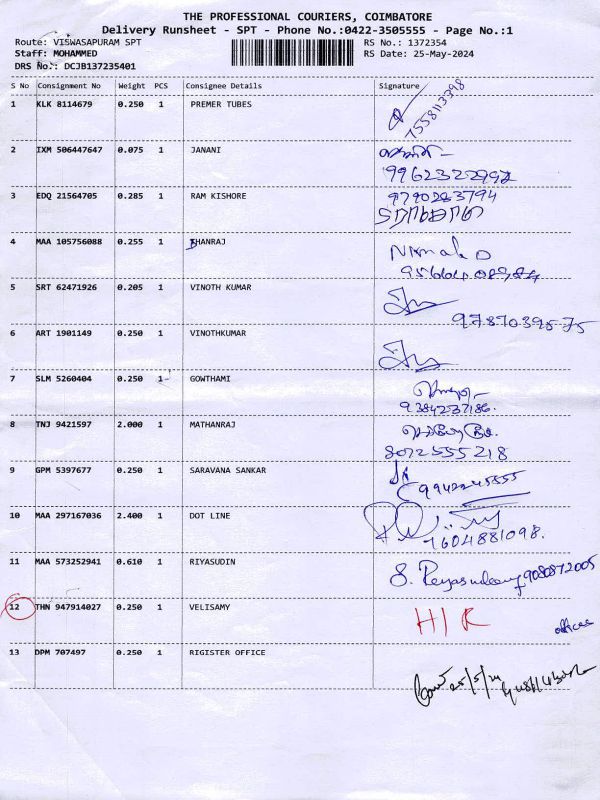 THE PROFESSIONAL COURIERS, COIMBATORE
Delivery Runsheet - SPT - Phone No.:0422-3505555 - Page No.:1
Route: VISWASAPURAM SPT RS No.: 1372354
Staff: MOHAMMED RS Date: 25-May-2024
DRS No.: DCJB137235401
S No Consignment No Weight PCS Consignee Details Signature
1 KLK 8114679 0.250 1 PREMER TUBES 7558113398
2 IXM 506447647 0.075 1 JANANI
9962322992
3 EDQ 21564705 0.285 1 RAM KISHORE 9790283794
4 MAA 105756088 0.255 1 DHANRAJ Nirmala D
5 SRT 62471926 0.205 1 VINOTH KUMAR
9787039575
6 ART 1901149 0.250 1 VINOTHKUMAR
7 SLM 5260404 0.250 1 GOWTHAMI
9384237186.
8 TNJ 9421597 2.000 1 MATHANRAJ
8072555218
9 GPM 5397677 0.250 1 SARAVANA SANKAR
9942245555
10 MAA 297167036 2.400 1 DOT LINE
7604881098.
11 MAA 573252941 0.610 1 RIYASUDIN 9080872005
12 THN 947914027 0.250 1 VELISAMY H/R
office
13 DPM 707497 0.250 1 RIGISTER OFFICE
25/5/24